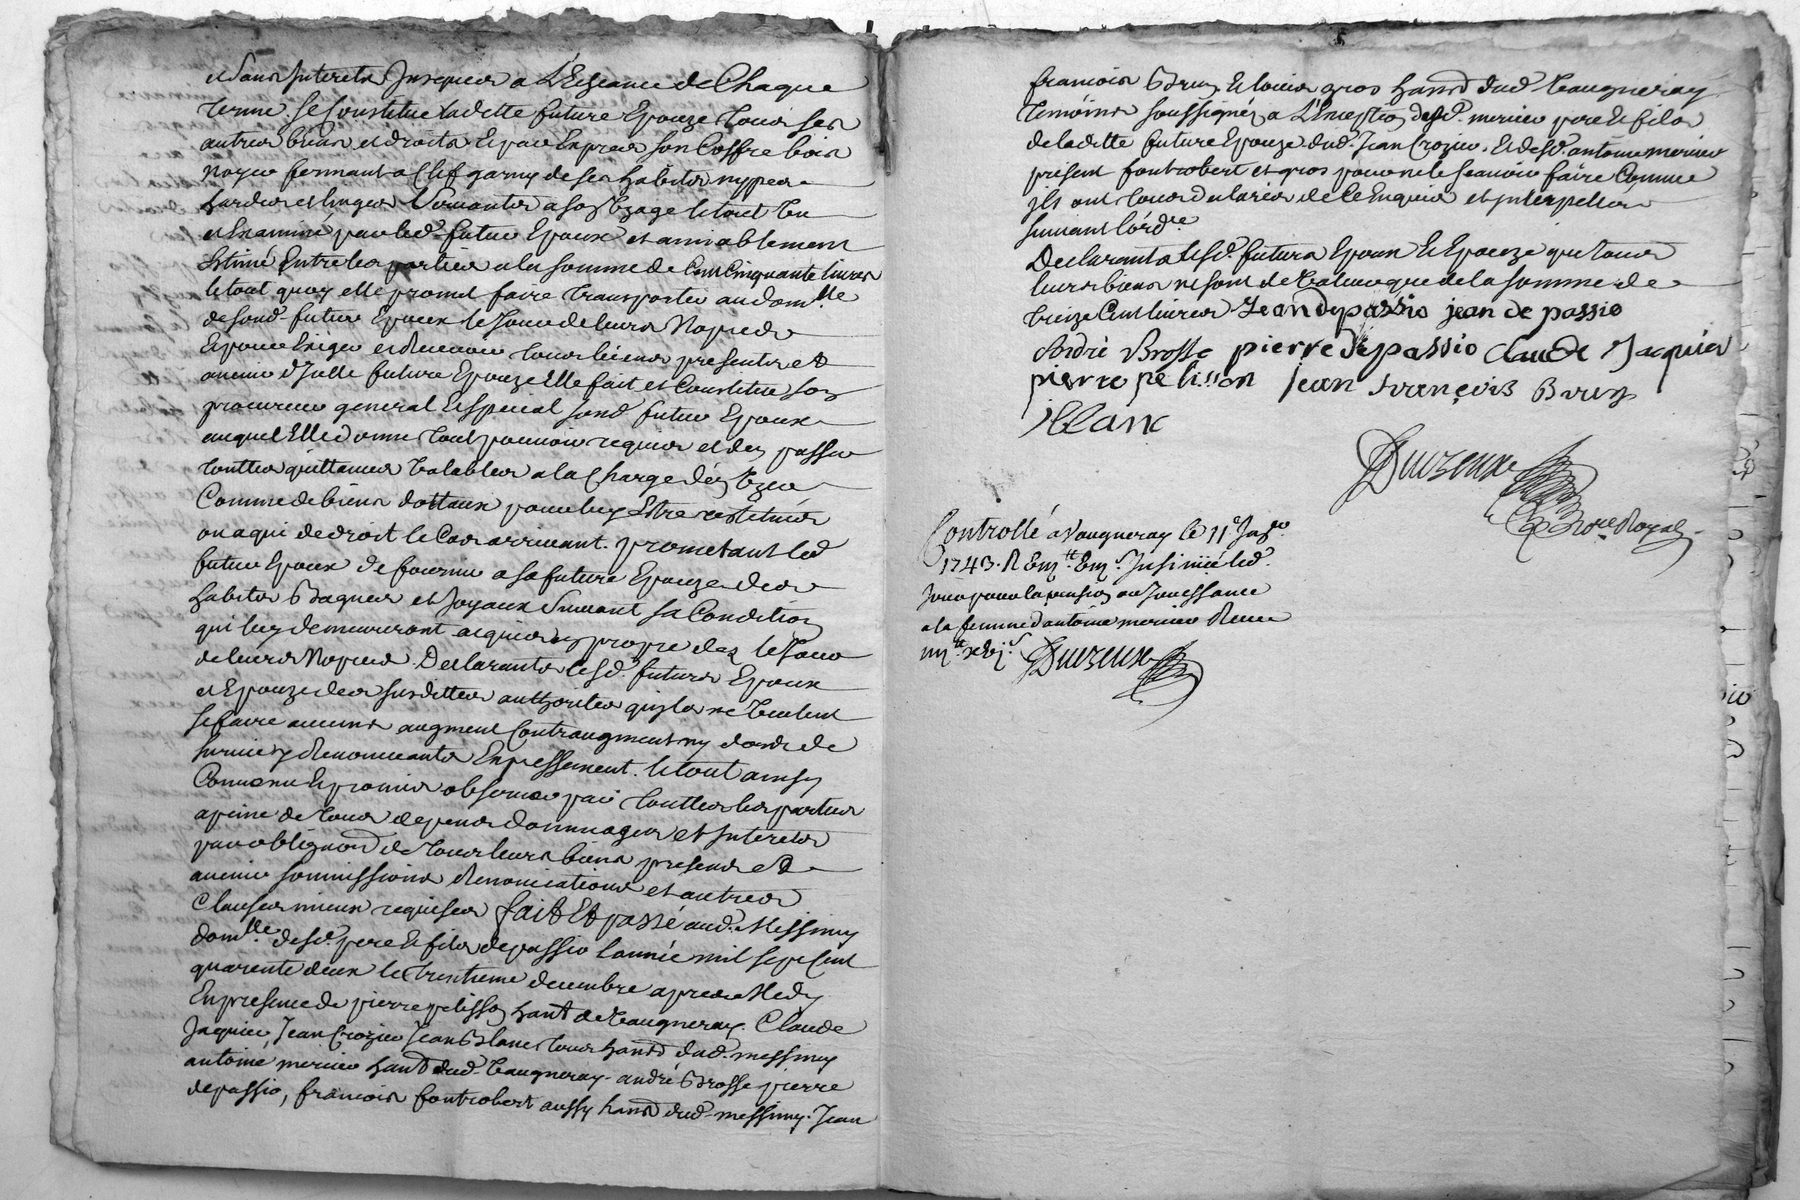 et sans interets jusques a L'Echeance de Chaque
terme. se Constitue ladette future Epouze tous ses
autres biens et droits Et par Expres son Coffre bois
noyer fermant a Clef garny de ses habits nypes
hardes et linges servants a son Uzage le tout vu
et Examiné par led. futur Epoux et amiablement
Estimé Entre les parties a la somme de Cent Cinquante livres
le tout quoy elle promet faire transporter au domlle
de sond. futur Epoux le Jour de leurs Nopces
Et pour Exiger et Recevoir tous biens presents et
avenir d'Jcelle future Epouze Elle fait et Constitue son
procureur general Et special sond. futur Epoux
auquel Elle donne tout pouvoir requis et d'en passer
touttes quittances valables a la Charge d'en Uzer
Comme de biens dottaux pour luy Estre restitués
ou a qui de droit le Cas arrivant. prometant led.
futur Epoux de fournir a sa future Epouze des
habits Bagues et Joyaux suivant sa Condition
qui luy demeureront acquis en propre dez le Jour
de leurs Nopces. Declarants lesd. futurs Epoux
et Epouze des susdittes authorites qu'ils ne veulent
se faire aucuns augment Contraugment ny dons de
survie y Renonceants Expressement. le tout ainsy
Convenu Et promis observer par touttes les parties
a peine de tous depens dommages et interets
par obligaon de tous leurs biens presens et
avenir soumissions Renonciations et autres
Clauses mieux requises fait Et passé aud. Messimy
domlle desd. pere Et fils depassio l'année mil sept Cent
quarente deux le trentieme decembre apres Midy
En presence de pierre pelisson habt de vaugneray. Claude
Jaquier, Jean Crozier Jean Blanc tous habts dud. messimy
antoine mercier habt dud. vaugneray. andré Brosse pierre
depassio, francois fontrobert aussy habts dud. messimy. Jean
francois Brun Et louis gros habts dud. vaugneray
temoins soussignés a L'Exception desd. mercier pere Et fils
de ladette future Epouze dud. Jean Crozier. Et desd. antoine mercier
present fontrobert et gros pour ne le scavoir faire Comme
jls ont tous declaries de Ce Enquis et jnterpellés
suivant l'ordce
Declarants lesd. futurs Epoux Et Epouze que tous
leurs biens ne sont de valeur que de la somme de
treize Cent livres Jean depassio jean de passio
André Brosse pierre depassio claude Jacquier
pierre pelisson jean françois Brun
JBlanc
Duizeux
Nore Royal
Controllé a Vaugneray le 11e Janer
1743. R
Jour pour la pension ou Jouissance
a la femme d'antoine mercier Receu
Duizeux